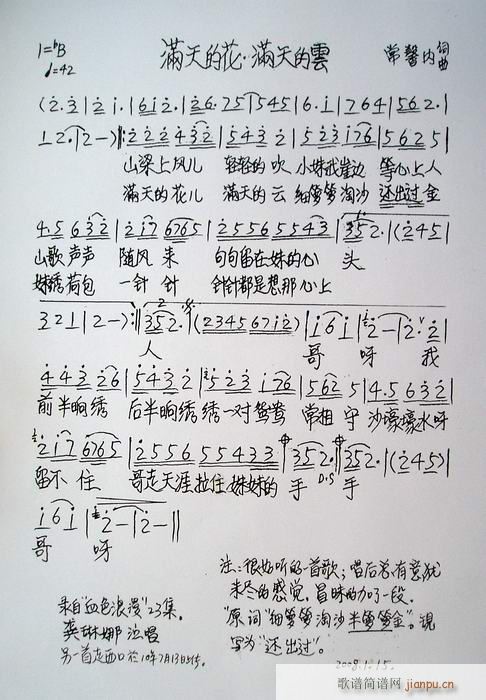 1=♭B
♩=42
滿天的花·滿天的雲
常馨内 词曲
(2·3|2 i·|6i2·|26·75|545|6·i|764|562·|
12·|2-):‖222432|5432|523i76|5625|
山梁上风儿 轻轻的吹 小妹我崖边 等心上人
滿天的花儿 滿天的云 细箩箩淘沙 还出过金
4·56 32|2i7 6765|2556 5543|352·|(245|
山歌声声 随风来 句句留在妹的心头
妹绣荷包 一针针 针针都是想那心上
321|2-):‖352·|(2345 67i2)|i6i|2-|2·2|
人 哥呀 我
443 26|5432|523 i76|562 5|4·5632|
前半晌绣 后半晌绣 绣一对鸳鸯 常相守 沙壕壕水呀
2i7 6765|2556 5543 3|352·‖352·|(245)|
留不住 哥走天涯拉住妹妹的手 D.S 手
i6i|2-|2-‖
哥呀
注：很好听的一首歌；唱后总有意犹
未尽的感觉，冒昧的加了一段.
"原词"细箩箩淘沙半箩箩金。误
写为"还出过"。
录自"血色浪漫"23集。
龚琳娜 演唱
另一首走西口于10年7月13日传.
2008.1.15.
歌谱简谱网
jianpu.cn